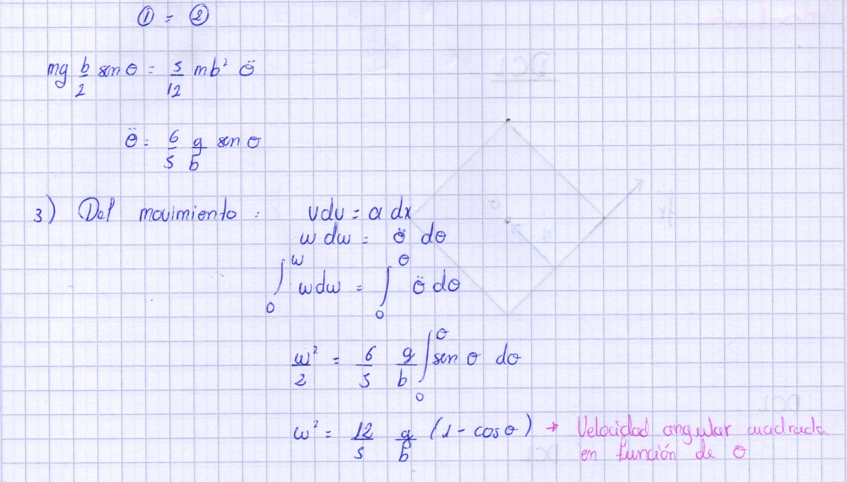 ① = ②
mg b/2 sen θ = 5/12 mb² θ̈
θ̈ = 6/5 g/b sen θ
3) Del movimiento : vdv = a dx
w dw = θ̈ dθ
∫₀^w wdw = ∫₀^θ θ̈ dθ
w²/2 = 6/5 g/b ∫₀^θ sen θ dθ
w² = 12/5 g/b (1 - cos θ) → Velocidad angular cuadrada
en función de θ